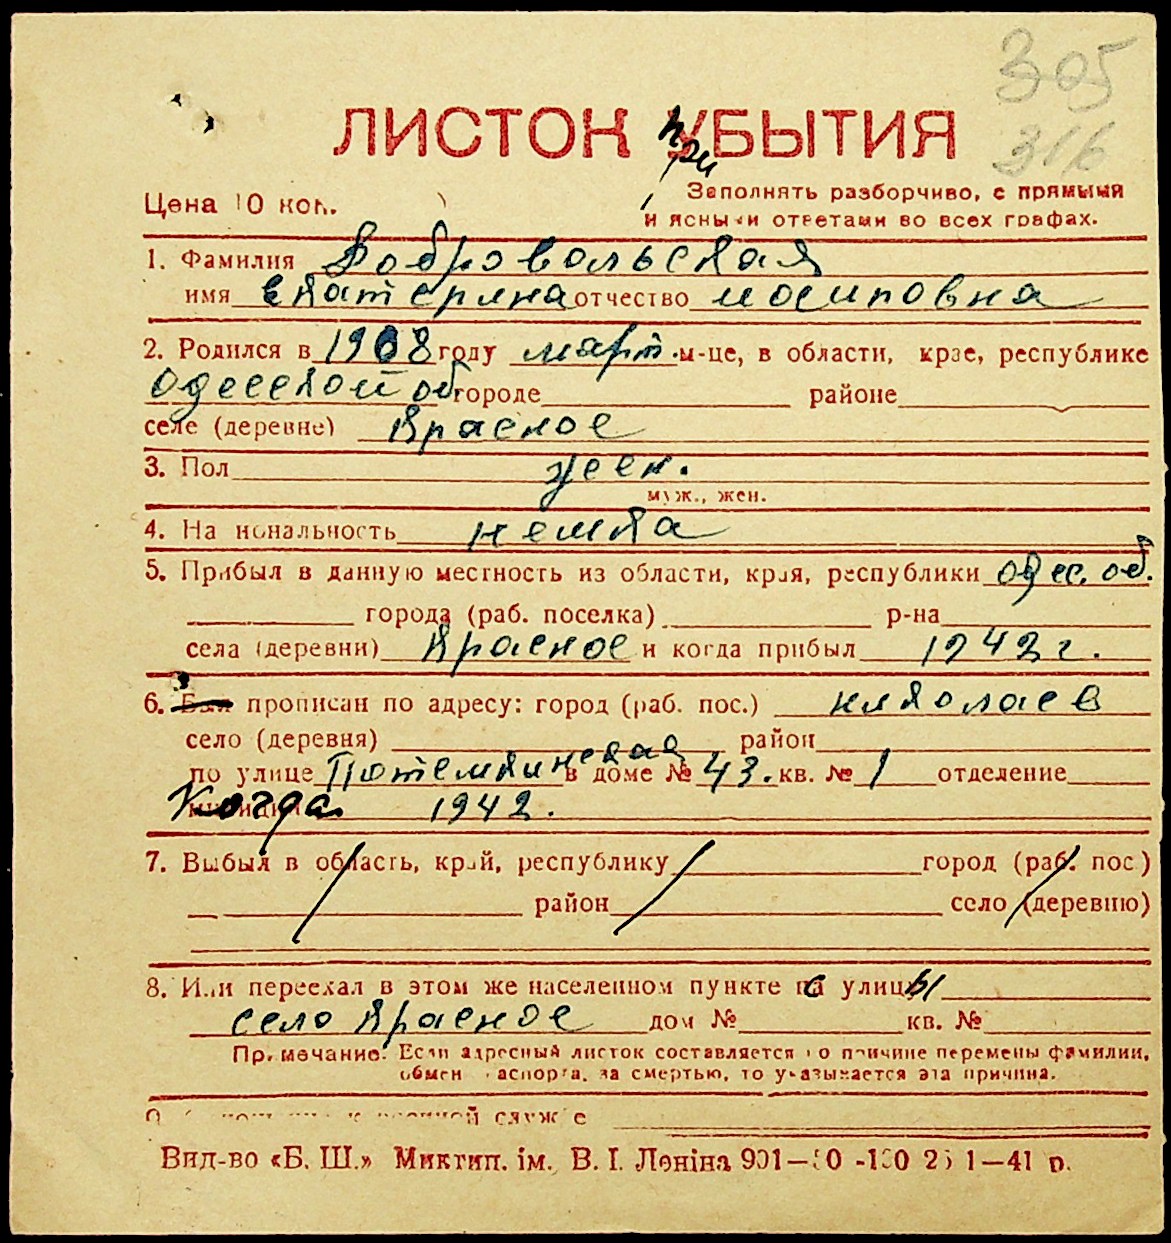 305
316
ЛИСТОК УБЫТИЯ
при
Цена 10 коп.
Заполнять разборчиво, с прямыми
и ясными ответами во всех графах.
1. Фамилия Добровольская
имя Екатерина отчество Иосиповна
2. Родился в 1908 году март. м-це, в области, крае, республике
Одесской об городе районе
селе (деревне) Красное
3. Пол жен.
муж., жен.
4. Национальность немка
5. Прибыл в данную местность из области, края, республики Одес. об.
города (раб. поселка) р-на
села (деревни) Красное и когда прибыл 1942 г.
6. Был прописан по адресу: город (раб. пос.) Николаев
село (деревня) район
по улице Потемкинская в доме № 43. кв. № 1 отделение
Когда 1942.
7. Выбыл в область, край, республику город (раб. пос)
район село (деревню)
8. Или переехал в этом же населенном пункте с улицы
село Красное дом № кв. №
Примечание: Если адресный листок составляется по причине перемены фамилии,
обмен паспорта, за смертью, то указывается эта причина.
военной службе
Вид-во «Б. Ш.» Миктип. ім. В. І. Леніна 901—